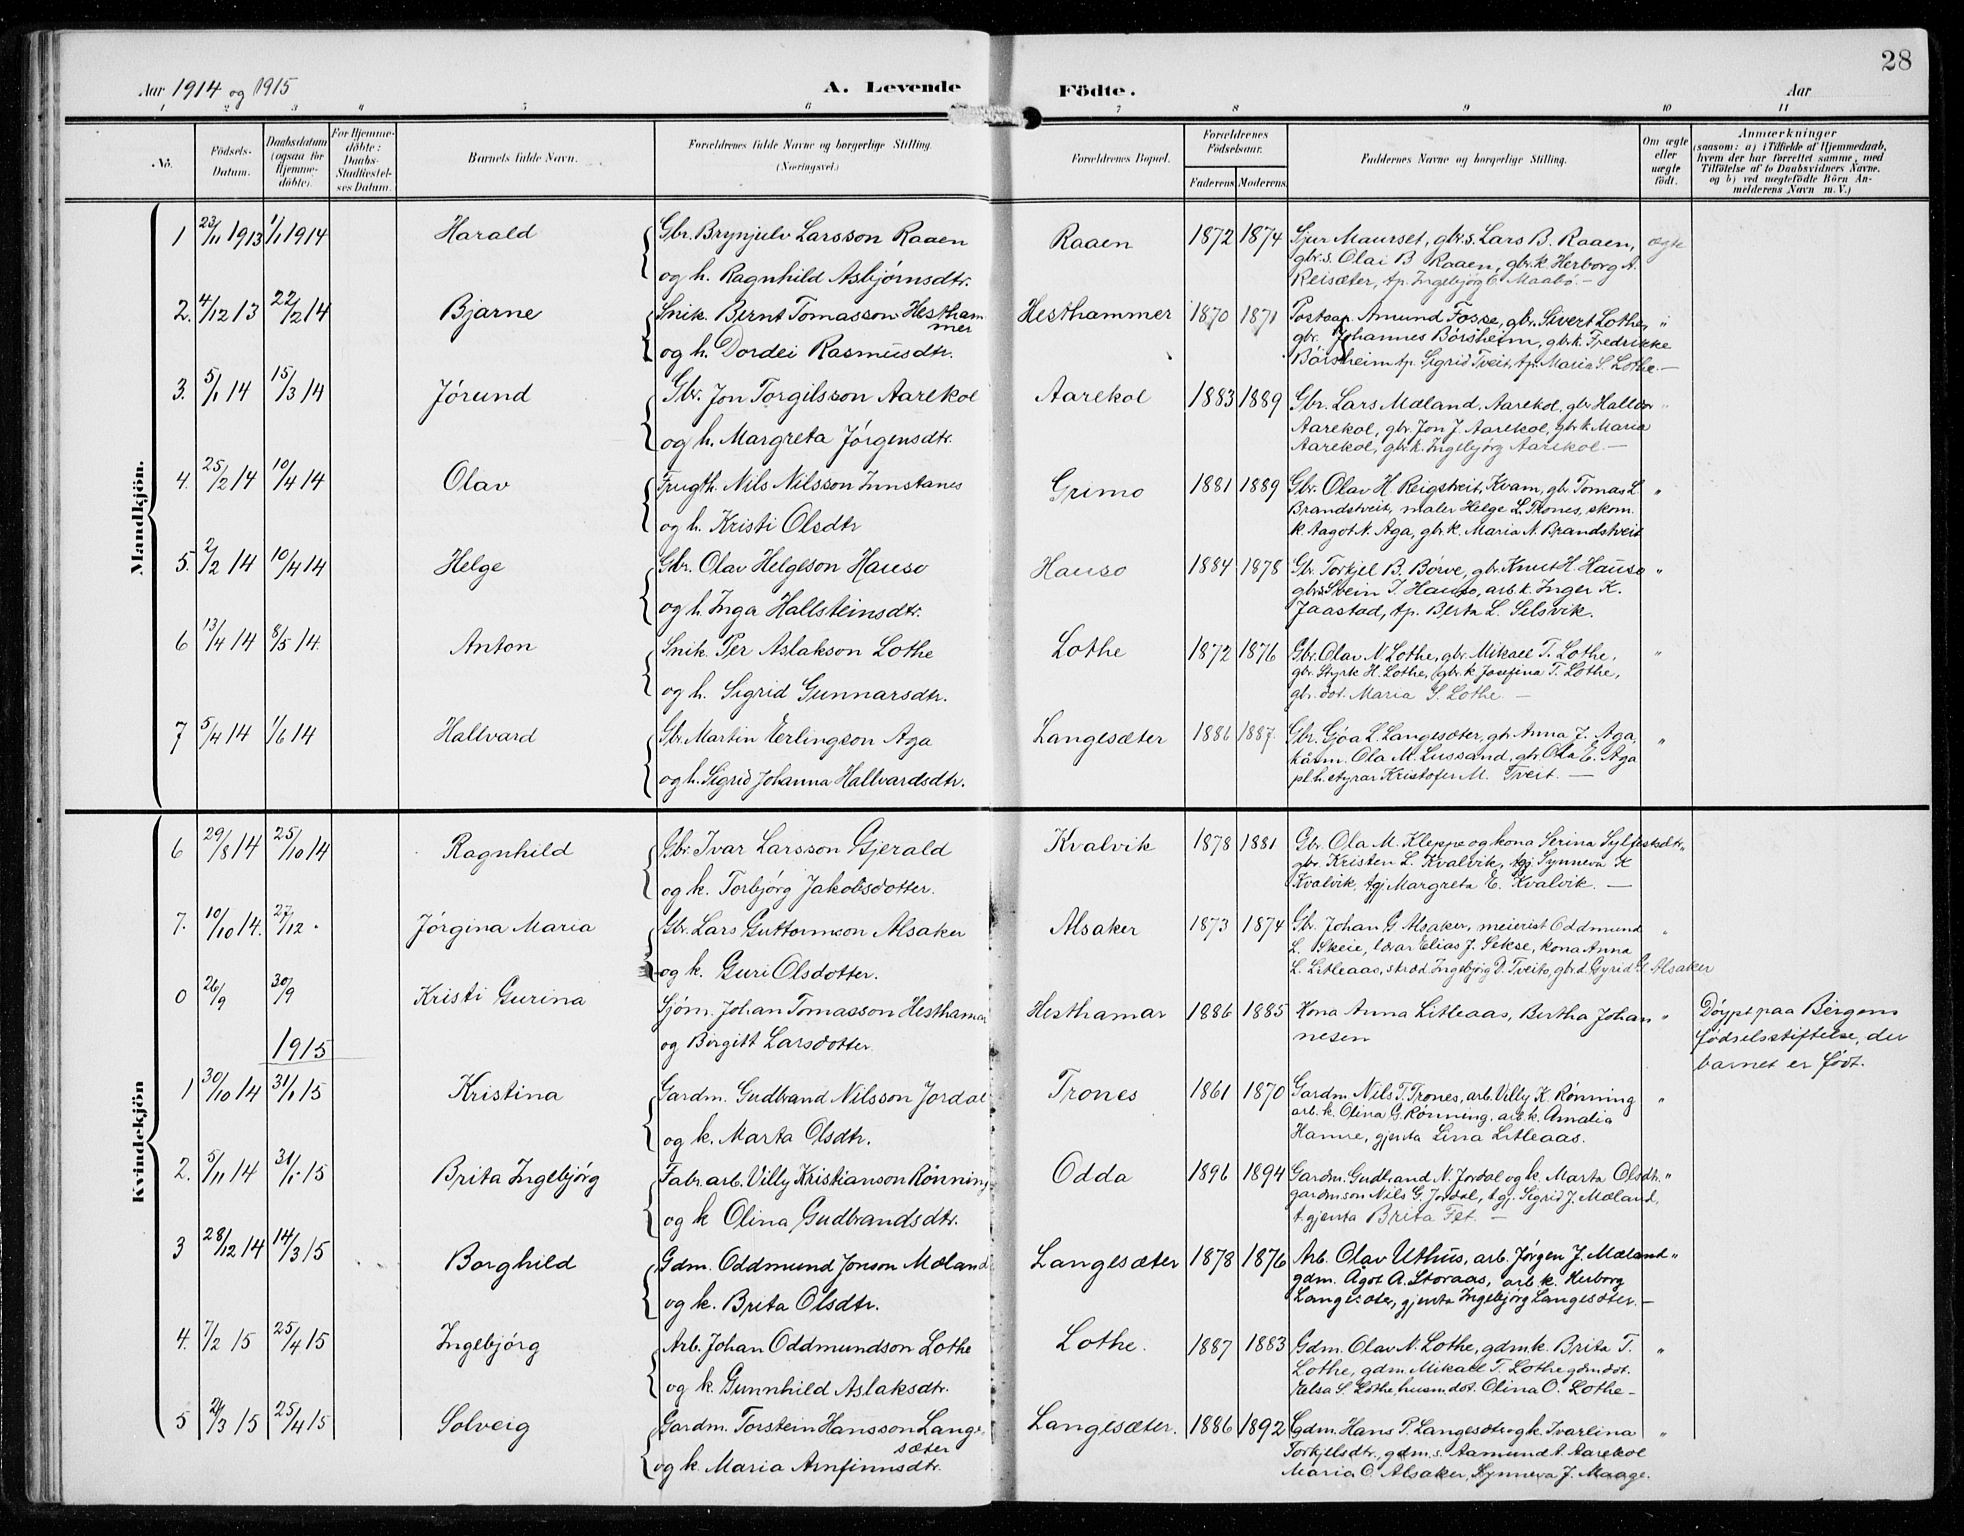 28
Aar 1914 og 1915 A. Levende Födte. Aar
1 2 3 4 5 6 7 8 9 10 11
Nö.
Födsels-Datum.
Daabsdatum (ogsaa for Hjemme-döbte).
For Hjemme-döbte: Daabs-Stadfæstel-ses Datum.
Barnets fulde Navn.
Forældrenes fulde Navne og borgerlige Stilling. (Næringsvei.)
Forældrenes Bopæl.
Forældrenes Födselsaar.
Faderens Moderens
Faddernes Navne og borgerlige Stilling.
Om ægte eller uægte födt.
Anmærkninger
(saasom: a) i Tilfælde af Hjemmedaab, hvem der har forrettet samme, med Tilföielse af to Daabsvidners Navne. og b) ved uægtefödte Börn An-melderens Navn m. V.)
Mandkjön.
1 23/11 1913 1/1 1914 Harald Gbr. Brynjulv Larsson Raaen Raaen 1872 1874 Sjur Maurset, gbr.s. Lars B. Raaen, ægte
gbr.s. Olai B Raaen, gbr.k. Herborg A.
og h. Ragnhild Asbjørnsdtr. Reisæter, tp. Ingebjørg C. Maabø. —
2. 4/12 13 22/2 14 Bjarne Snik. Bernt Tomasson Hestham- Hesthammer 1870 1871 Postaap. Amund Fosse, gbr. Sivert Lothe, "
mer gbr. Johannes Börsheim, gbr.k. Fredrikke
og h. Dordei Rasmusdtr. Börsheim tp. Sigrid Tveit, tp. Maria S. Lothe. —
3. 5/1 14 15/3 14 Jörund Gbr. Jon Torgilsson Aarekol Aarekol 1883 1889 Gbr. Lars Mæland, Aarekol, gbr Halldor "
Aarekol, gbr. Jon J. Aarekol, gbr. k. Maria
og h. Margreta Jørgensdtr. Aarekol, gbr. k. Ingebjørg Aarekol. —
4. 25/2 14 10/4 14 Olav Frugth. Nils Nilsson Innstanes Grimo 1881 1889 Gbr. Olav H. Reigstveit, Kvam, gbr. Tomas L. "
Brandstveit, maler Helge L. Trones, skom.
og h. Kristi Olsdtr k. Aagot N. Aga, gbr. k. Maria N. Brandstveit
5. 2/2 14 10/4 14 Helge Gbr. Olav Helgeson Hauso Hauso 1884 1878 Gbr. Torkjel B. Börve, gbr. Knut H. Hauso "
gbr.s Svein I. Hauso, arb. k. Inger K.
og h. Inga Hallsteinsdtr. Jaastad, tp. Berta L. Selsvik.
6 13/4 14 8/5 14. Anton Snik. Per Aslakson Lothe Lothe 1872 1876 Gbr. Olav N Lothe, gbr. Mikael T. Lothe, "
gbr. Styrk H. Lothe, gbr. k. Josefina T. Lothe,
og h. Sigrid Gunnarsdtr. gbr. dot. Maria S. Lothe. —
7 5/4 14 1/6 14 Hallvard Gbr. Martin Erlingson Aga Langesæter 1886 1887. Gbr. Gjøa L. Langesæter, gbr. Anna J. Aga, "
Ola M. Lussand, gbr. Ola E. Aga
og h. Sigrid Johanna Hallvardsdtr. pl.h. styrar Kristofer M. Tveit. —
Kvindekjön
6 29/8 14 25/10 14 Ragnhild Gbr. Ivar Larsson Gjerald Kvalvik 1878 1881 Gbr. Ola M. Kleppe og kona Serina Sylfestsdtr. "
gbr. Kristen L. Kvalvik, tgj Synneva K
og k. Torbjörg Jakobsdotter. Kvalvik, tgj Margreta E. Kvalvik. —
7. 10/10 14. 27/12 . Jórgina Maria Gbr. Lars Guttormson Alsaker Alsaker 1873 1874 Gbr. Johan G Alsaker, meierist Oddmund "
L. Skeie, lærar Elias J. Sekse, kona Anna
og k. Guri Olsdotter. L. Litleaas, stud. Ingebjørg D. Tveito, gbr.d. Gyrid G. Alsaker
0 26/9 30/9 Kristi Gurina Sjöm. Johan Tomasson Hesthamar Hesthamar 1886 1885 Kona Anna Litleaas, Bertha Johan- " Döypt paa Bergens
og Birgitt Larsdotter. nesen födselsstiftelse, der
1915 barnet er födt.
1 30/10 14 31/1 15 Kristina Gardm. Gudbrand Nilsson Jordal Trones 1861 1870 Gardm. Nils T. Trones, arb. Villy K. Rönning "
arb. k. Olina G. Rönning, arb. k. Amalia
og k. Marta Olsdtr. Hamre, gjenta Lina Litleaas.
2. 5/11 14 31/1 15 Brita Ingebjörg Fabr. arb. Villy Kristianson Rönning Odda 1891 1894 Gardm. Gudbrand N. Jordal og k. Marta Olsdtr. "
gardmson Nils G. Jordal, tgj. Sigrid J. Mæland,
og k Olina Gudbrandsdtr. t.gjenta Brita Fet. —
3 28/12 14 14/3 15 Borghild Gdm. Oddmund Jonson Mæland Langesæter 1878 1876 Arb. Olav Uthus, arb. Jörgen J. Mæland "
gdm. Ågot A. Storaas, arb. k. Herborg
og k. Brita Olsdtr. Langesæter, gjenta Ingebjörg Langesæter. —
4. 7/2 15 25/4 15 Ingebjörg Arb. Johan Oddmundson Lothe Lothe. 1887 1883 Gdm. Olav N. Lothe, gdm.k. Brita T. "
Lothe, gdm. Mikael T. Lothe gdm.dot.
og k. Gunnhild Aslaksdtr. Jelsa S. Lothe, husm.dot. Olina O. Lothe —
5 21/3 15 25/4 15 Solveig Gardm. Torstein Hansson Lange- Langesæter. 1886 1892 Gdm. Hans P. Langesæter og k. Ivarlina "
sæter Torkjelsdtr, gdm. s. Aamund A. Aarekol
og k. Maria Arnfinnsdtr. Maria O. Alsaker, Synneva J. Maage.